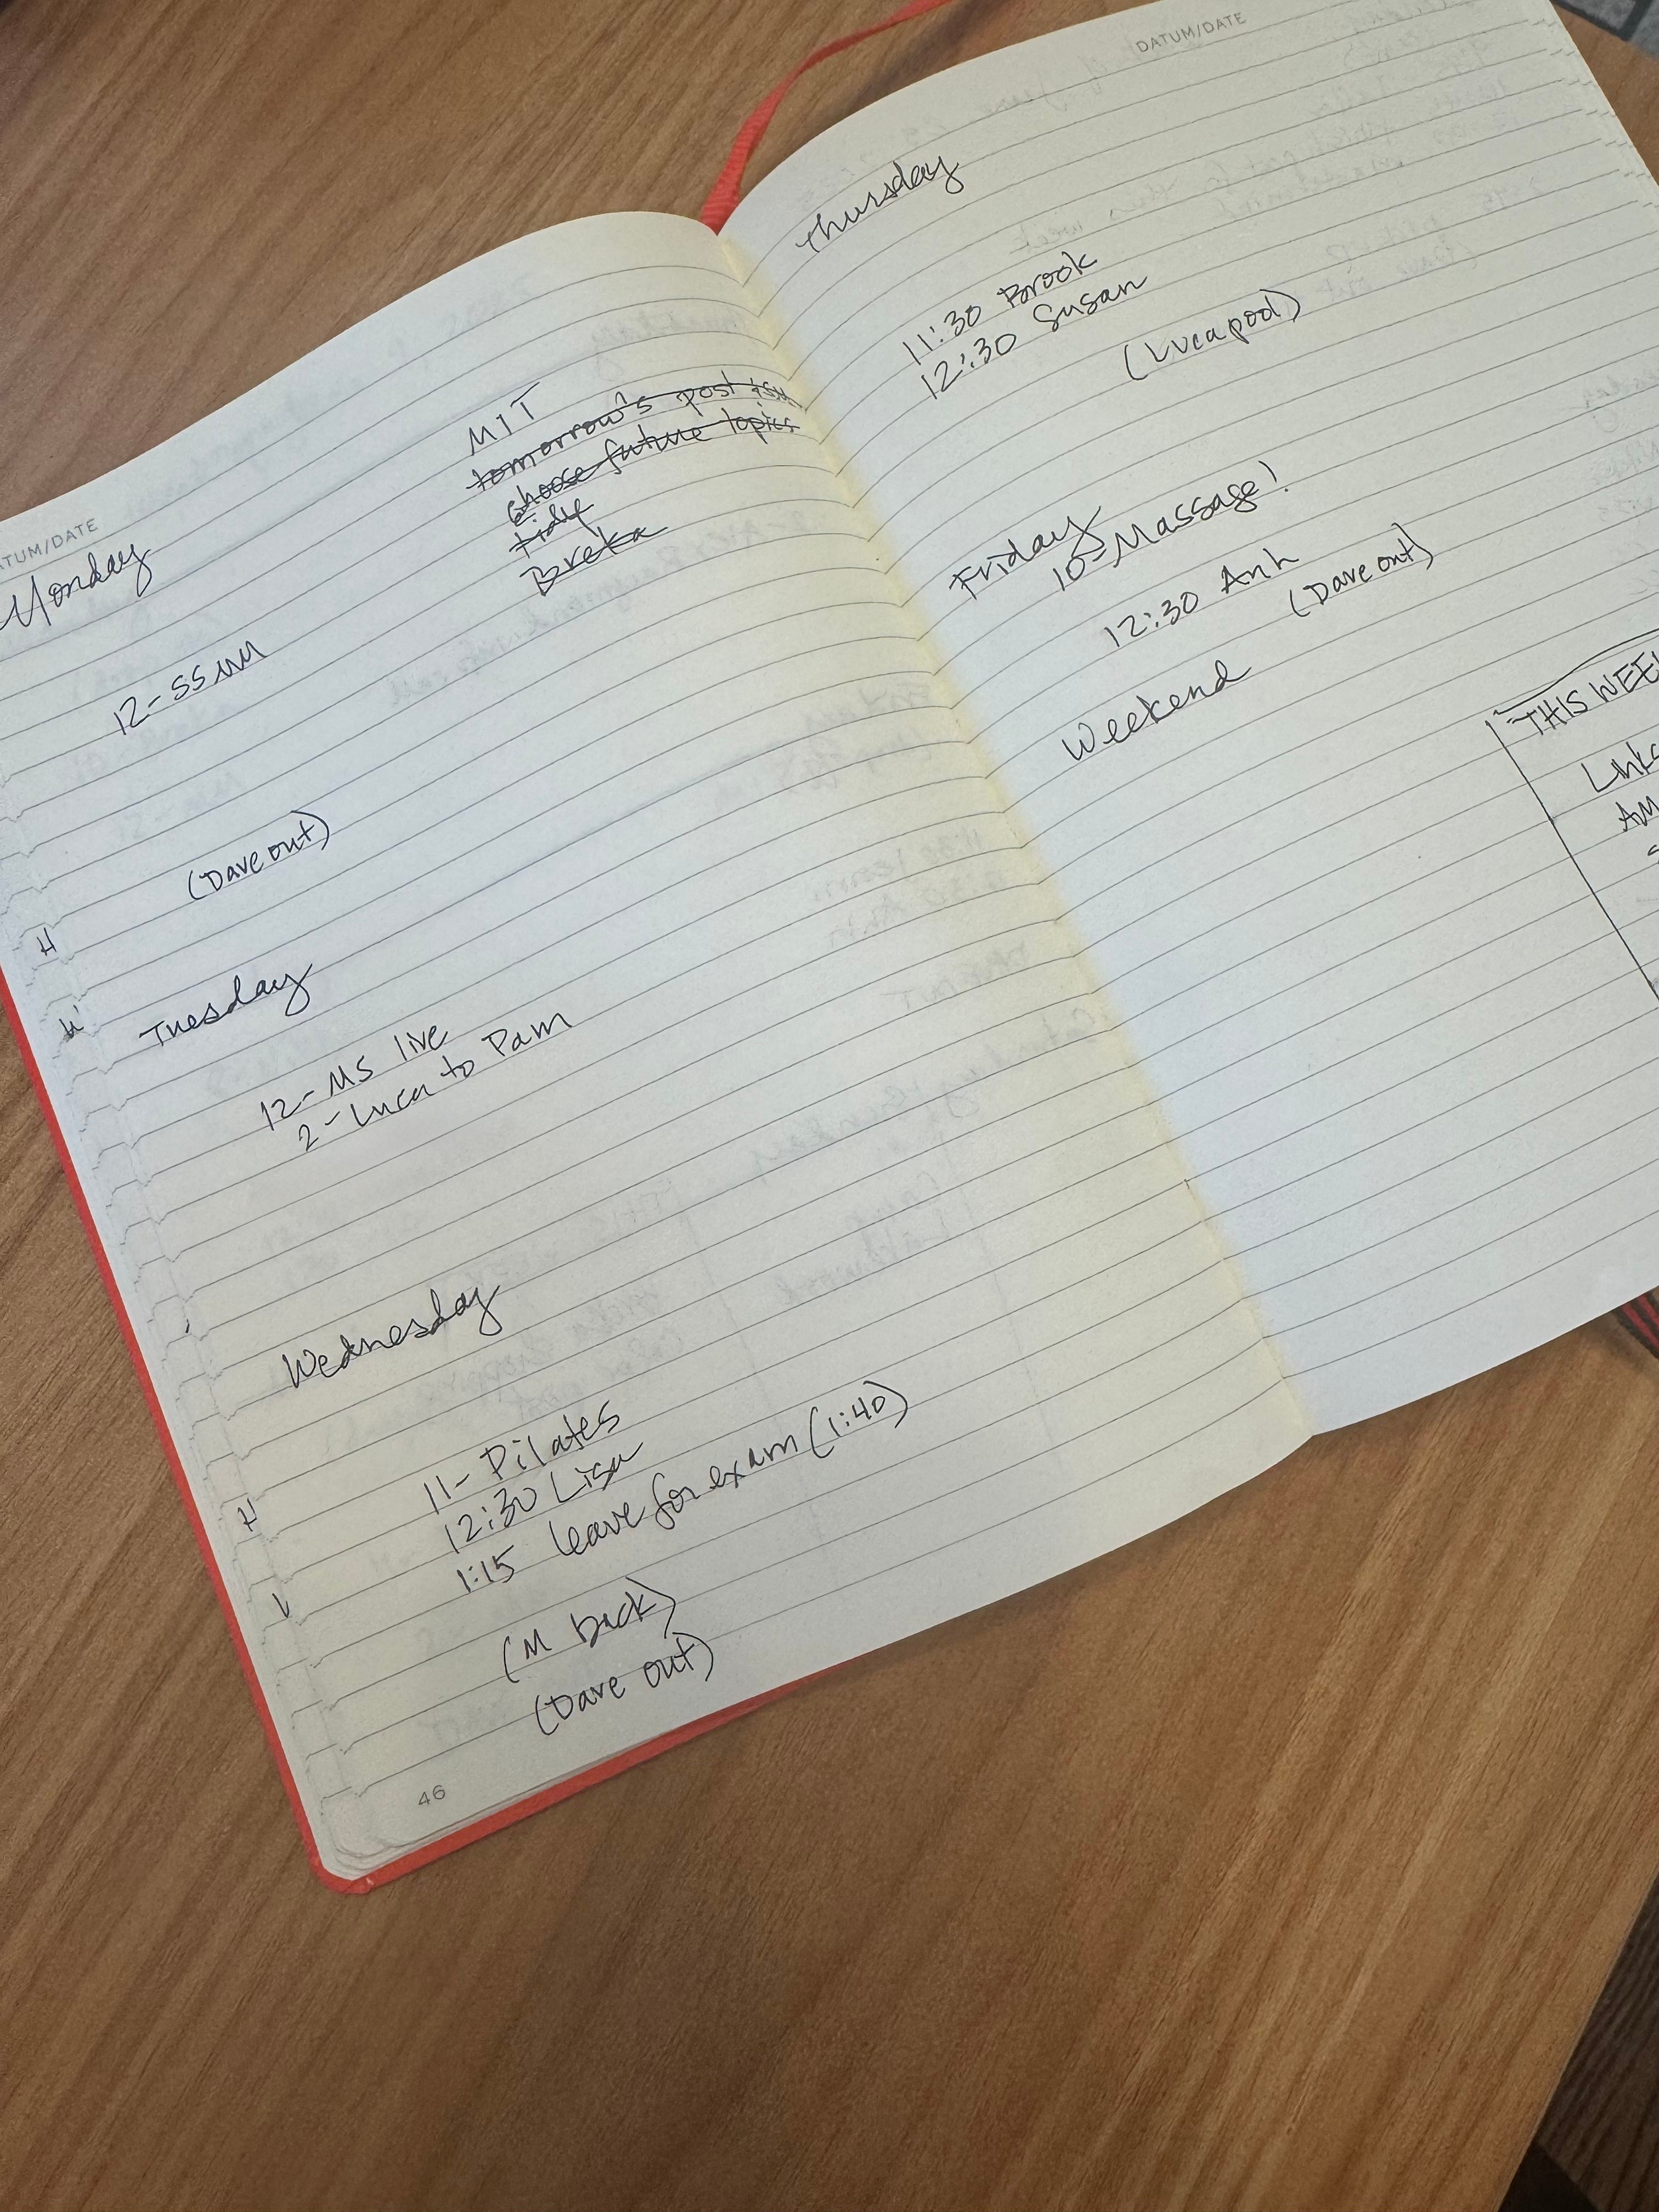 DATUM/DATE
Monday
MIT
tomorrow's post
choose future topics
tidy
Breka
12-SSMM
(Dave out)
Tuesday
12-MS live
2-Luca to Pam
Wednesday
11-Pilates
12:30 Lisa
1:15 leave for exam (1:40)
(M back)
(Dave out)
46
DATUM/DATE
Thursday
11:30 Brook
12:30 Susan
(Luca pod)
Friday
10-Massage!
12:30 Anh
(Dave out)
Weekend
THIS WEE